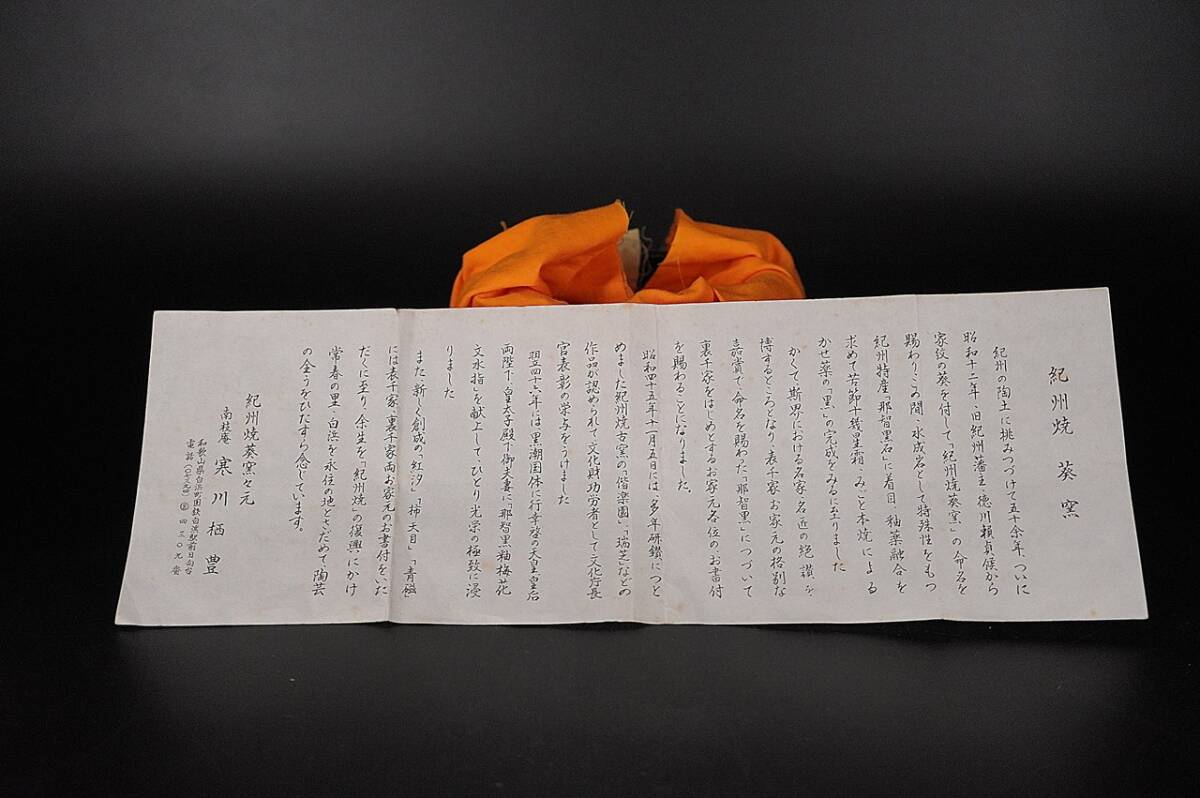 紀州焼 葵窯
紀州の陶土に挑みつづけて五十余年、ついに
昭和十二年・旧紀州藩主・徳川頼貞候から
家紋の葵を付して「紀州焼葵窯」の命名を
賜わりこの間、水成岩として特殊性をもつ
紀州特産「那智黒石」に着目、釉薬融合を
求めて苦節十幾星霜・みごと本焼による
かせ薬の「黒」の完成をみるに至りました
かくて斯界における名家・名匠の絶讃を
博するところとなり、表千家お家元の格別な
ご嘉賞で命名を賜わった「那智黒」につづいて
裏千家をはじめとするお家元各位のお書付
を賜わることになりました。
昭和四十五年十一月五日には、多年研鑽につと
めました紀州焼古窯の「偕楽園」「瑞芝」などの
作品が認められて文化財功労者として文化庁長
官表彰の栄与をうけました
翌四十六年には黒潮国体に行幸啓の天皇皇后
両陛下・皇太子殿下御夫妻に「那智黒釉梅花
文水指」を献上して、ひとり光栄の極致に浸
りました
また新しく創成の「紅汐」「柿天目」「青磁」
には表千家・裏千家両お家元のお書付をいた
だくに至り・余生を「紀州焼」の復興にかけ
常春の里・白浜を永住の地とさだめて陶芸
の全うをひたすら念じています。
紀州焼葵窯々元
南枝庵 寒川栖豊
和歌山県白浜町国鉄白浜駅前日向台
四三〇元番